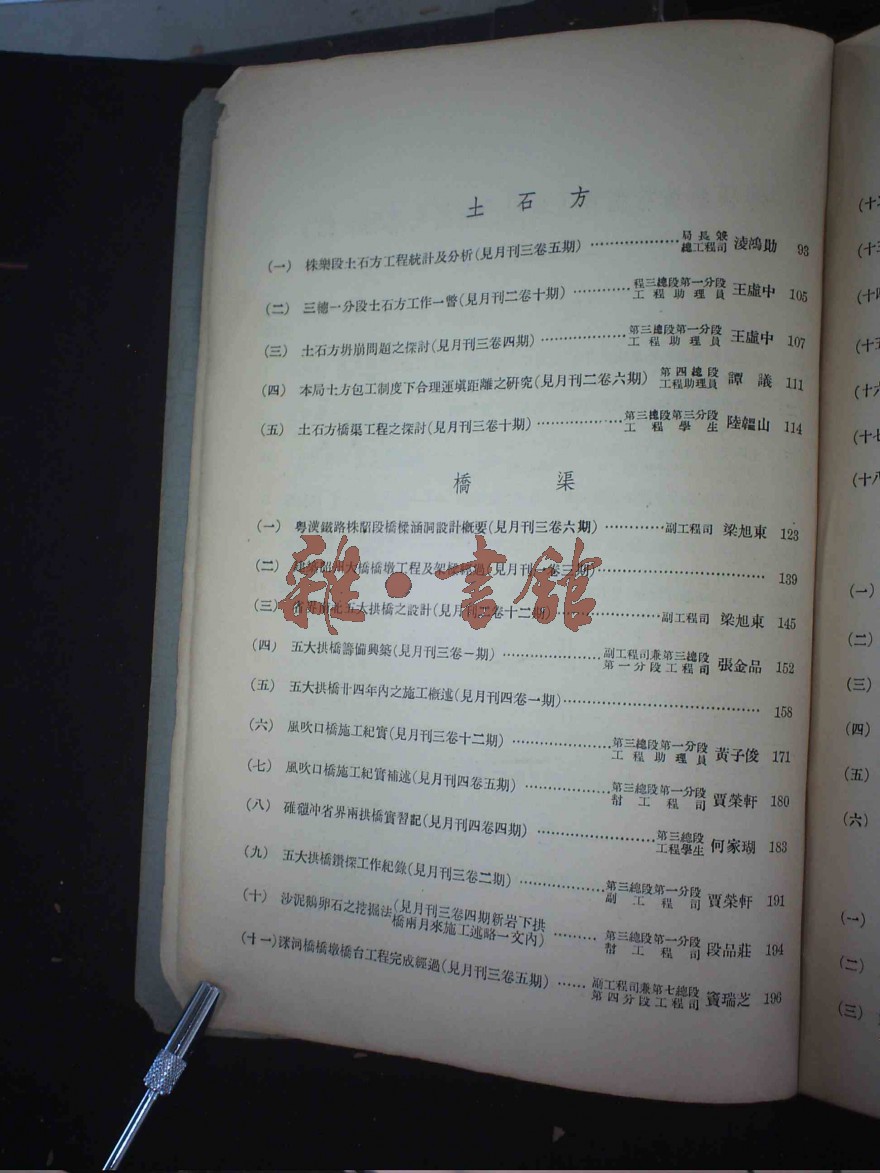 土石方
(一) 株樂段土石方工程統計及分析(見月刊三卷五期) 局長兼總工程司 淩鴻勛 93
(二) 三總一分段土石方工作一瞥(見月刊二卷十期) 程三總段第一分段工程助理員 王虛中 105
(三) 土石方坍崩問題之探討(見月刊三卷四期) 第三總段第一分段工程助理員 王虛中 107
(四) 本局土方包工制度下合理運填距離之研究(見月刊二卷六期) 第四總段工程助理員 譚議 111
(五) 土石方橋渠工程之探討(見月刊三卷十期) 第三總段第三分段工程學生 陸韞山 114
橋渠
(一) 粤漢鐵路株韶段橋樑涵洞設計槪要(見月刊三卷六期) 副工程司 梁旭東 123
(二) 大橋橋墩工程及架樑經過(見月刊一卷三期) 139
(三) 省界南北五大拱橋之設計(見月刊三卷十二期) 副工程司 梁旭東 145
(四) 五大拱橋籌備興築(見月刊三卷一期) 副工程司兼第三總段第一分段工程司 張金品 152
(五) 五大拱橋廿四年內之施工槪述(見月刊四卷一期) 158
(六) 風吹口橋施工紀實(見月刊三卷十二期) 第三總段第一分段工程助理員 黃子俊 171
(七) 風吹口橋施工紀實補述(見月刊四卷五期) 第三總段第一分段幇工程司 賈榮軒 180
(八) 碓磑冲省界兩拱橋實習記(見月刊四卷四期) 第三總段工程學生 何家瑚 183
(九) 五大拱橋鑽探工作紀錄(見月刊三卷二期) 第三總段第一分段副工程司 賈榮軒 191
(十) 沙泥鵝卵石之挖掘法(見月刊三卷四期新岩下拱橋兩月來施工述略一文內) 第三總段第一分段幇工程司 段品莊 194
(十一) 渌河橋橋墩橋台工程完成經過(見月刊三卷五期) 副工程司兼第七總段第四分段工程司 竇瑞芝 196
雜·書館
(十
(十三
(十四
(十五
(十六
(十七
(十八
(一)
(二)
(三)
(四)
(五)
(六)
(一)
(二)
(三)